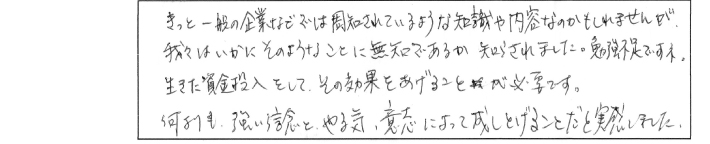 きっと一般の企業などでは周知されているような知識や内容なのかもしれませんが、
我々はいかにそのようなことに無知であるか知らされました。勉強不足ですネ。
生きた資金投入をして、その効果をあげることが必要です。
何よりも、強い信念と、やる気、意志によって成しとげることだと実感しました。